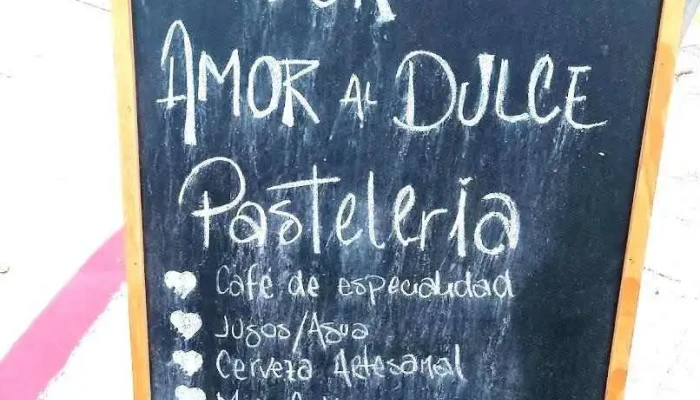 POR
AMOR AL DULCE
Pasteleria
Café de especialidad
Jugos/Agua
Cerveza Artesanal